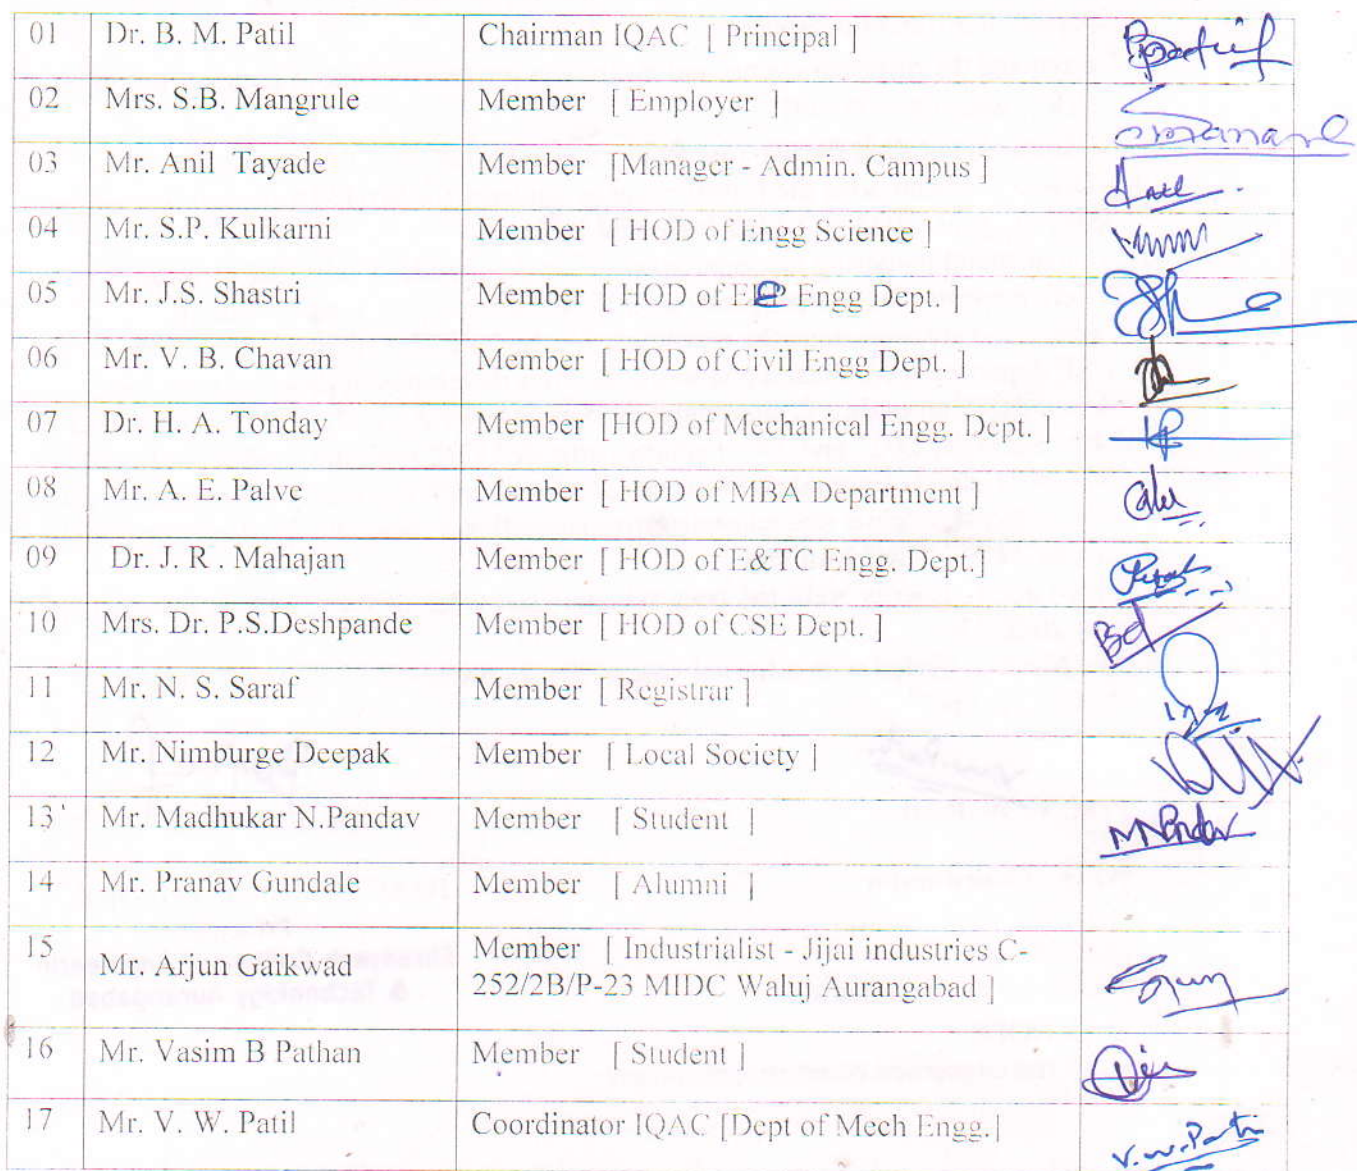 01 Dr. B. M. Patil Chairman IQAC [ Principal ]
02 Mrs. S.B. Mangrule Member [ Employer ]
03 Mr. Anil Tayade Member [Manager - Admin. Campus ]
04 Mr. S.P. Kulkarni Member [ HOD of Engg Science ]
05 Mr. J.S. Shastri Member [ HOD of Engg Dept. ]
06 Mr. V. B. Chavan Member [ HOD of Civil Engg Dept. ]
07 Dr. H. A. Tonday Member [HOD of Mechanical Engg. Dept. ]
08 Mr. A. E. Palve Member [ HOD of MBA Department ]
09 Dr. J. R . Mahajan Member [ HOD of E&TC Engg. Dept.]
10 Mrs. Dr. P.S.Deshpande Member [ HOD of CSE Dept. ]
11 Mr. N. S. Saraf Member [ Registrar ]
12 Mr. Nimburge Deepak Member [ Local Society ]
13 Mr. Madhukar N.Pandav Member [ Student ]
14 Mr. Pranav Gundale Member [ Alumni ]
15 Mr. Arjun Gaikwad Member [ Industrialist - Jijai industries C-
252/2B/P-23 MIDC Waluj Aurangabad ]
16 Mr. Vasim B Pathan Member [ Student ]
17 Mr. V. W. Patil Coordinator IQAC [Dept of Mech Engg.]